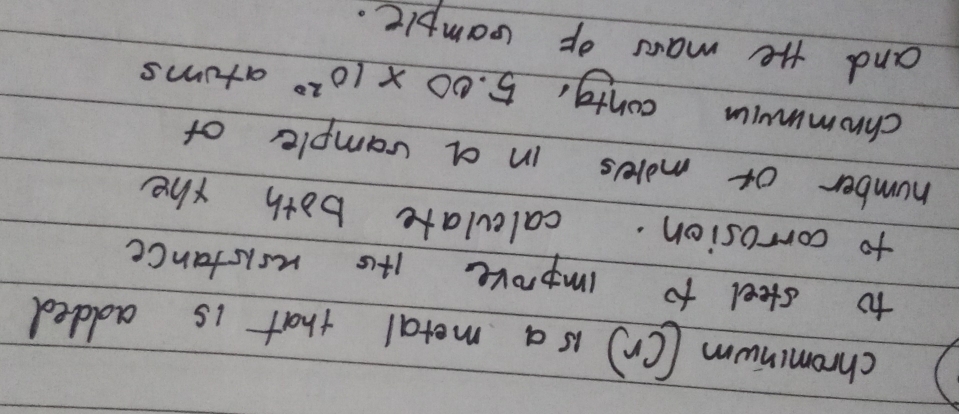 chrominum (Cr) is a metal that is added
to steel to improve its resistance
to corrosion. calculate both the
number of moles in a sample of
chrominum contg. 5.00 x 10²⁰ atoms
and the mass of sample.